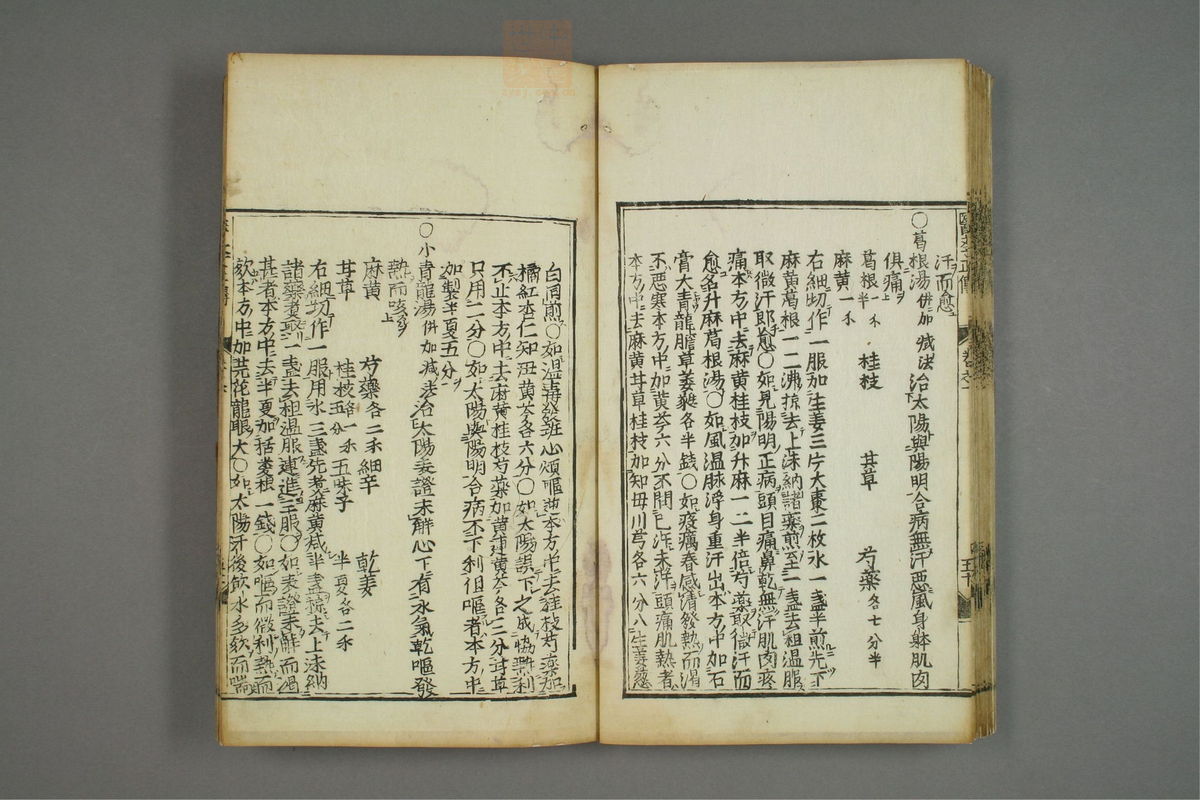 汗而愈
○葛根湯 倂加減法 治太陽與陽明合病無汗惡風身躰肌肉
俱痛
葛根 一半 桂枝 甘草 芍藥 各七分半
麻黄 一
右細切作一服加生姜三片大棗二枚水一盞半煎先下
麻黄葛根一二沸掠去上沫納諸藥煎至一盞去粗溫服
取微汗即愈○如見陽明正病頭目痛鼻乾無汗肌肉疼
痛本方中去麻黄桂枝加升麻一二半倍芍藥取微汗而
愈名升麻葛根湯○如風溫脉浮身重汗出本方中加石
膏大青龍膽草萎蕤各半錢○如疫癘春感清發熱而渴
不惡寒本方中加黄芩六分不問已汗未汗頭痛肌熱者
本方中去麻黄甘草桂枝加知母川芎各六分入生姜葱
白同煎○如溫毒發班心煩嘔逆本方中去桂枝芍藥加
橘紅杏仁知母黄芩各六分○如太陽誤下之成協熱利
不止本方中去麻黄桂枝芍藥加黄連黄芩各三分甘草
只用二分○如太陽與陽明合病不下利但嘔者本方中
加製半夏五分
○小青龍湯 倂加減法 治太陽表證未解心下有水氣乾嘔發
熱而咳
麻黄 芍藥 各二 細辛 乾姜
甘草 桂枝 各一五分 五味子 半夏 各二
右細切作一服用水三盞先煮麻黄减半盞掠去上沫納
諸藥煮取一盞去粗溫服連進三服○如表證未解而渴
甚者本方中去半夏加括蔞根一錢○如嘔而微利熱而
欬本方中加芫花龍眼大○如太陽汗後飲水多欬而喘